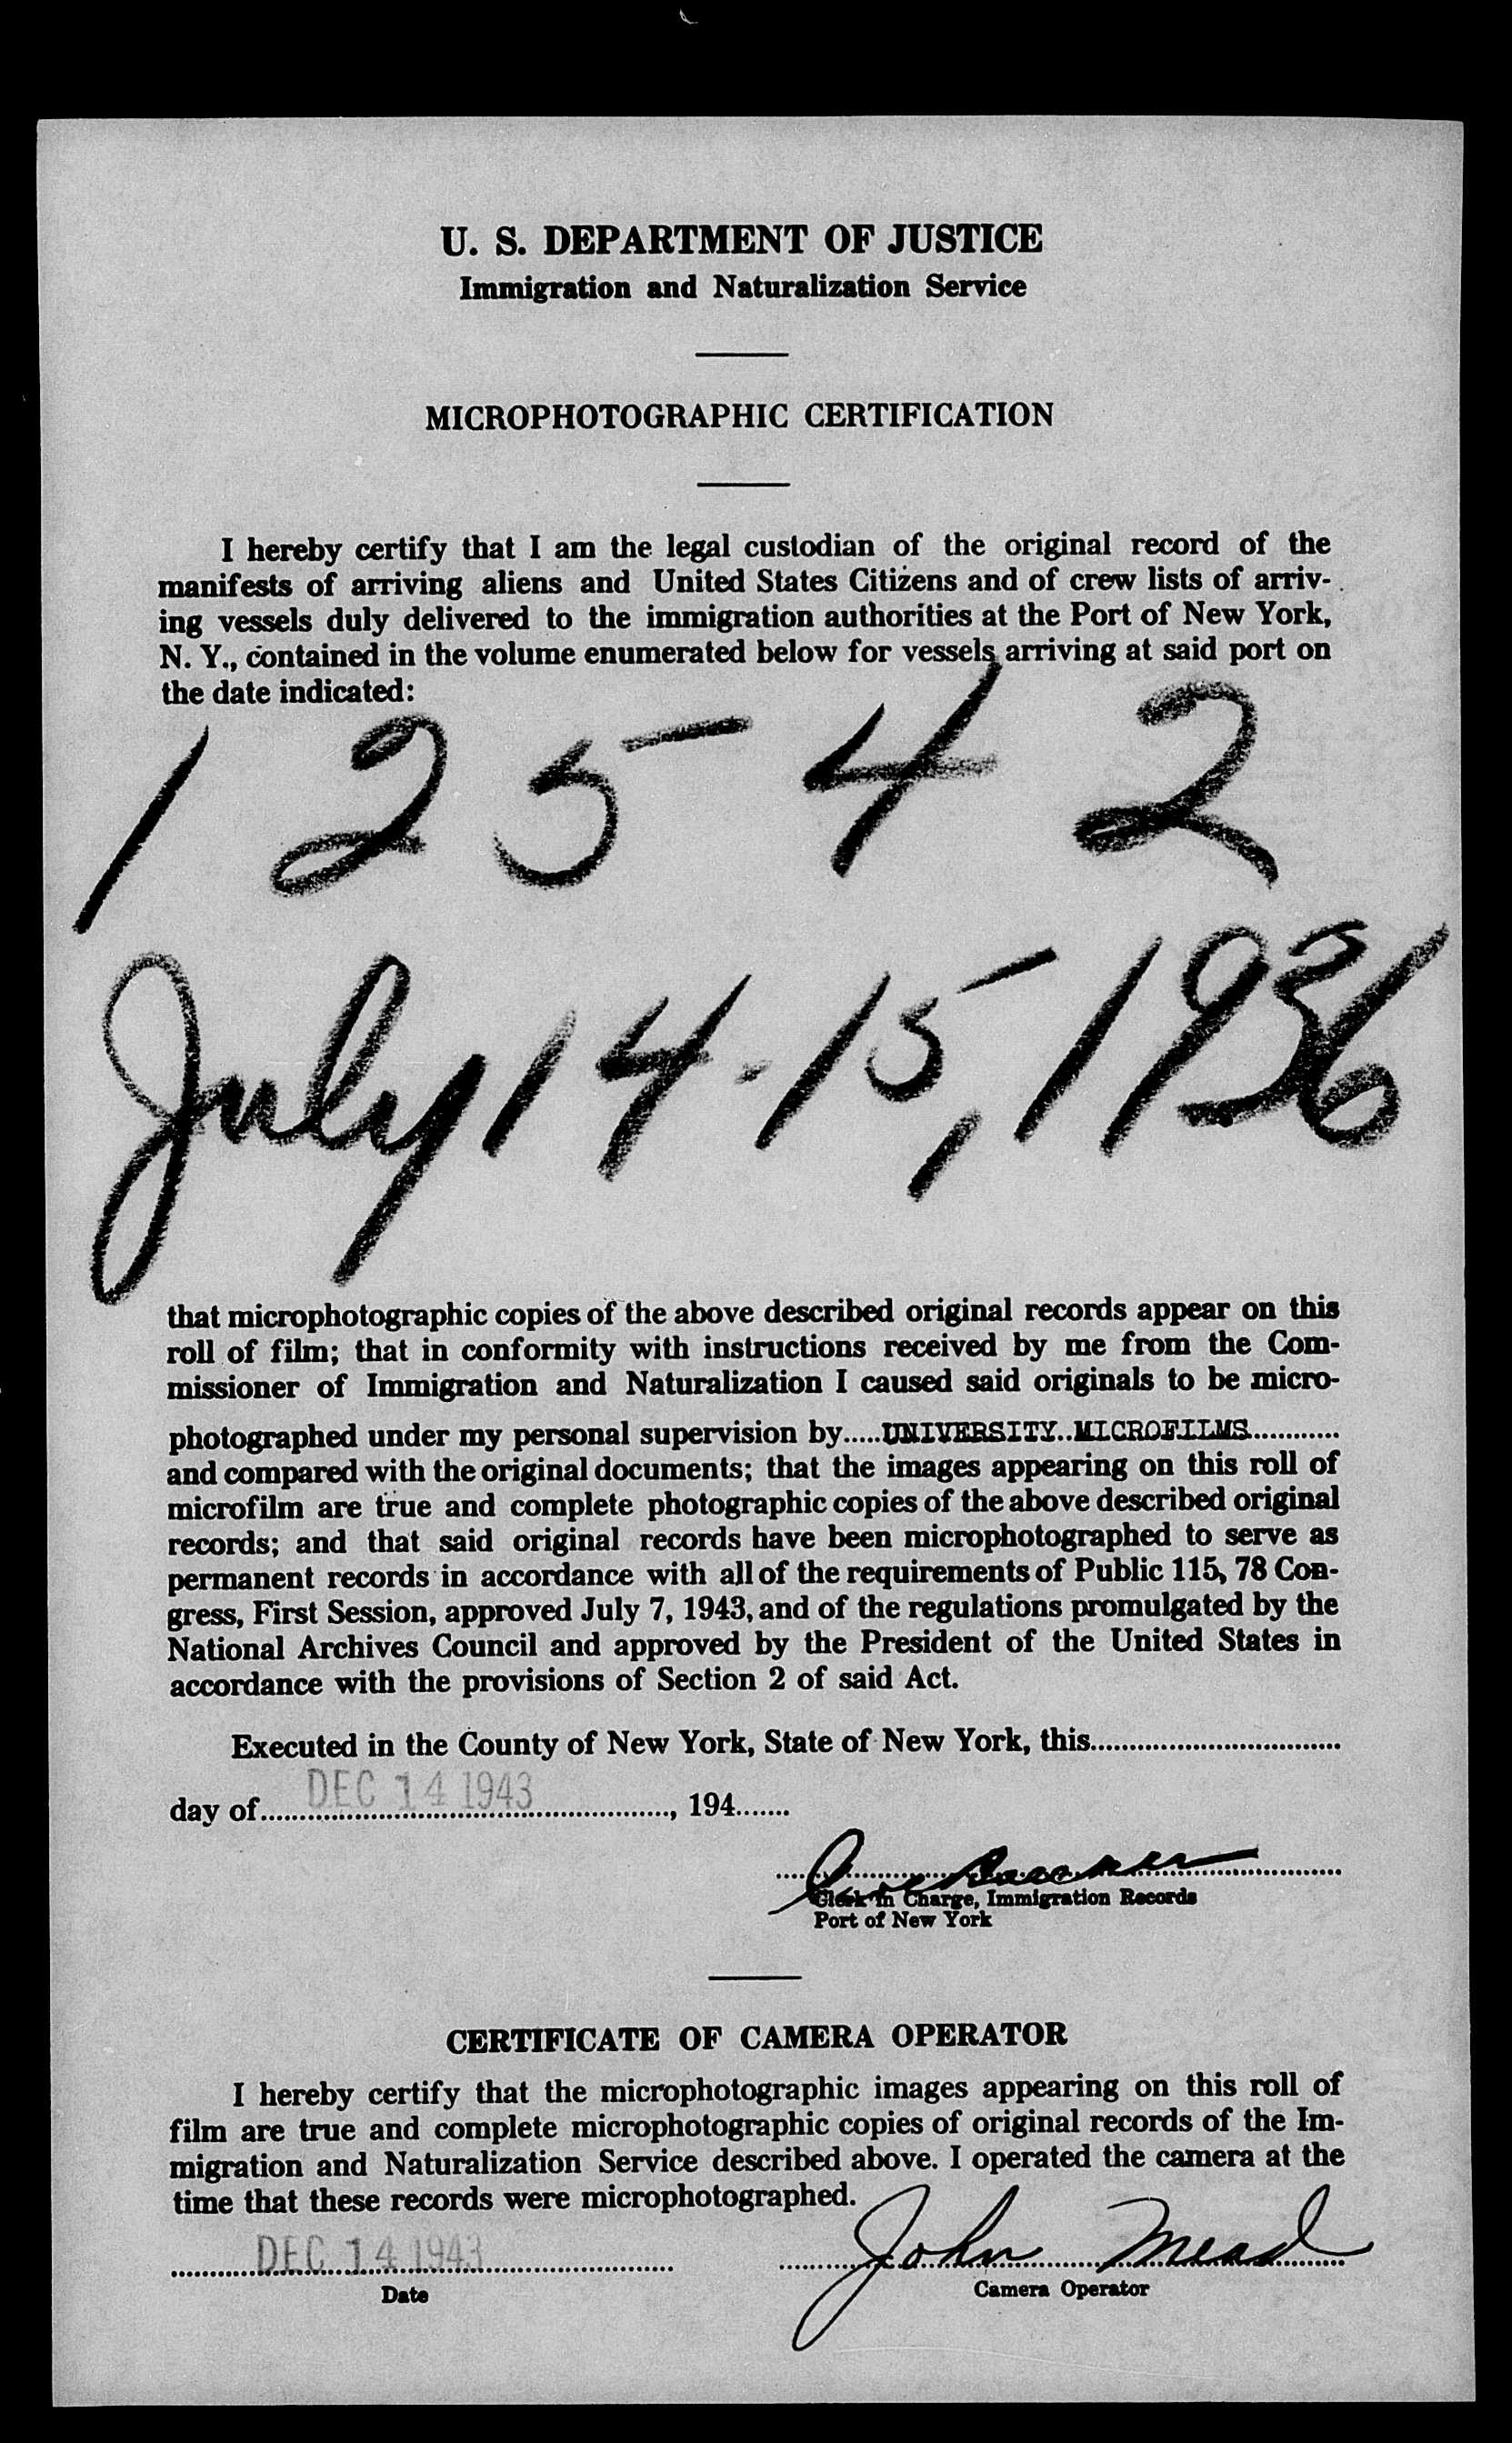 U. S. DEPARTMENT OF JUSTICE
Immigration and Naturalization Service
MICROPHOTOGRAPHIC CERTIFICATION
I hereby certify that I am the legal custodian of the original record of the
manifests of arriving aliens and United States Citizens and of crew lists of arriv-
ing vessels duly delivered to the immigration authorities at the Port of New York,
N. Y., contained in the volume enumerated below for vessels arriving at said port on
the date indicated:
1 2 5 4 2
July 14-15, 1936
that microphotographic copies of the above described original records appear on this
roll of film; that in conformity with instructions received by me from the Com-
missioner of Immigration and Naturalization I caused said originals to be micro-
photographed under my personal supervision by.....UNIVERSITY..MICROFILMS............
and compared with the original documents; that the images appearing on this roll of
microfilm are true and complete photographic copies of the above described original
records; and that said original records have been microphotographed to serve as
permanent records in accordance with all of the requirements of Public 115, 78 Con-
gress, First Session, approved July 7, 1943, and of the regulations promulgated by the
National Archives Council and approved by the President of the United States in
accordance with the provisions of Section 2 of said Act.
Executed in the County of New York, State of New York, this................................
day of..... DEC 14 1943 ................., 194.......
Clerk in Charge, Immigration Records
Port of New York
CERTIFICATE OF CAMERA OPERATOR
I hereby certify that the microphotographic images appearing on this roll of
film are true and complete microphotographic copies of original records of the Im-
migration and Naturalization Service described above. I operated the camera at the
time that these records were microphotographed.
DEC 14 1943 John Mead
Date Camera Operator